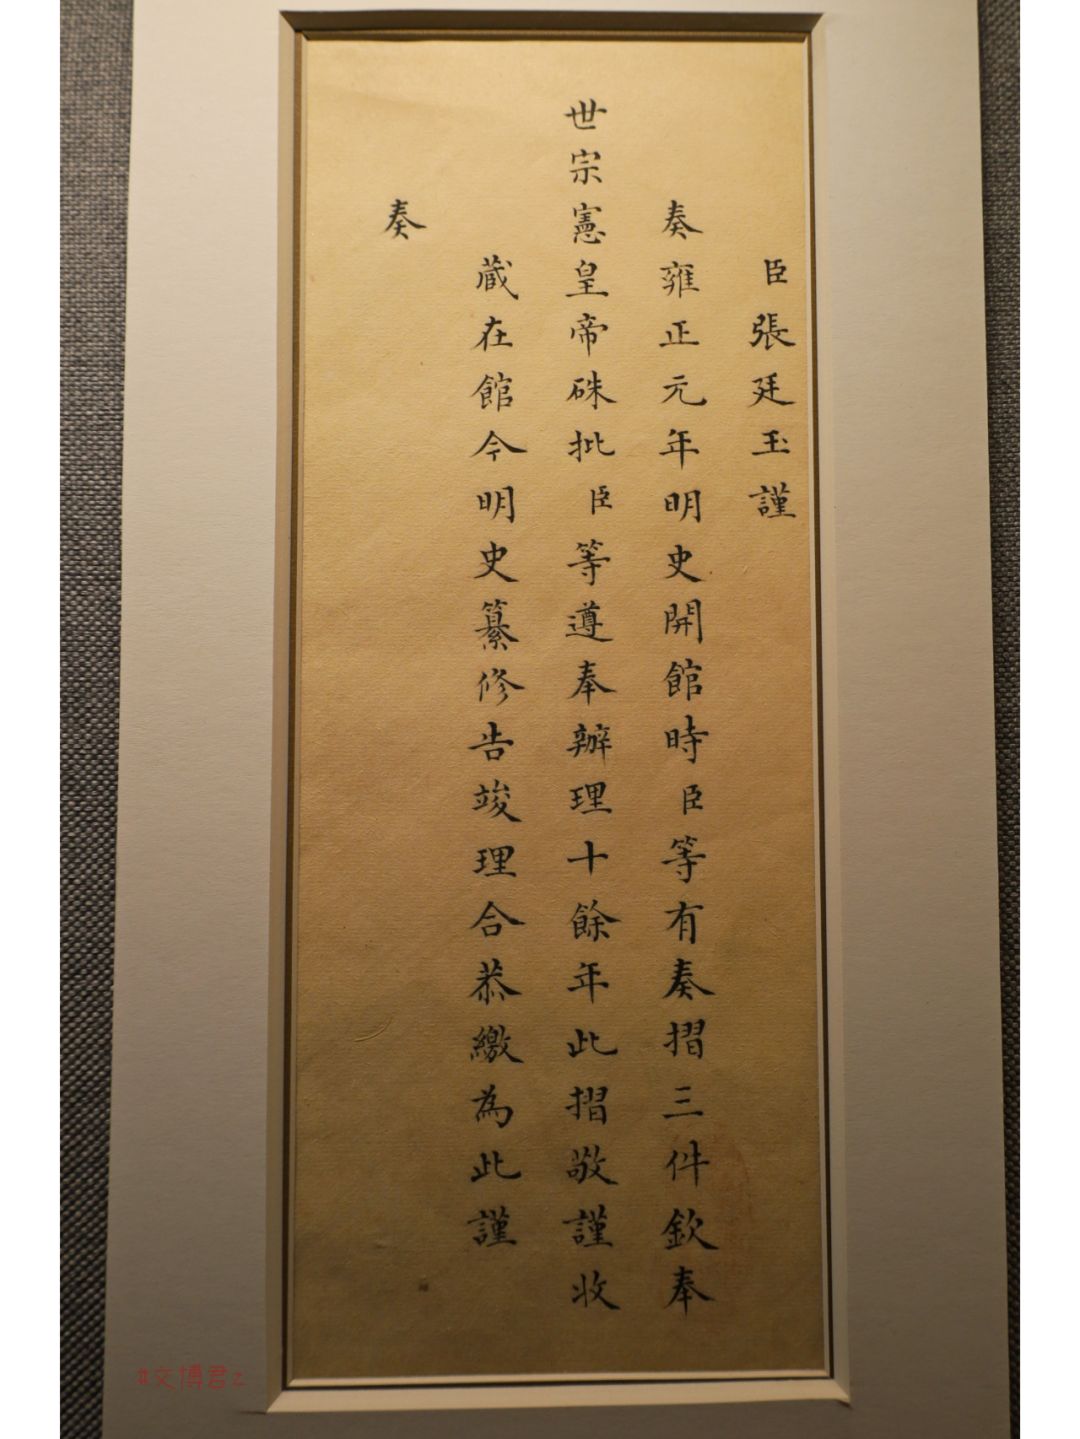 臣張廷玉謹
奏雍正元年明史開館時臣等有奏摺三件欽奉
世宗憲皇帝硃批臣等遵奉辦理十餘年此摺敬謹收
藏在館今明史纂修告竣理合恭繳為此謹
奏
#文博君z